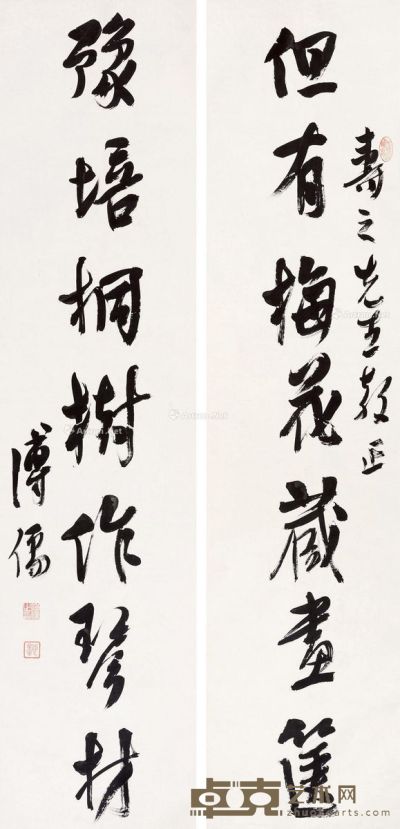 壽之先生教正
但有梅花藏畫篋
豫培桐樹作琴材
溥儒
卓克艺术网
www.zhuokearts.com